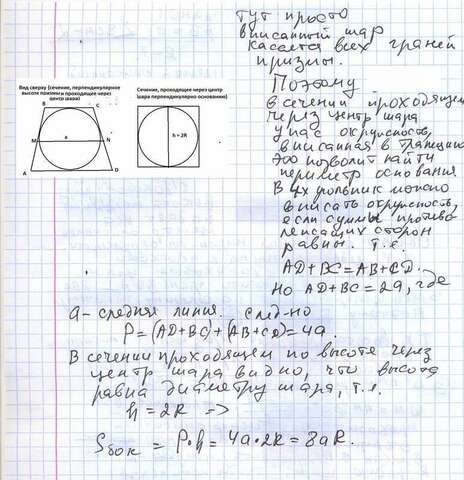 Тут просто
вписанный шар
касается всех граней
призмы.
Поэтому
в сечении проходящем
через центр шара
у нас окружность,
вписанная в трапецию
это позволит найти
периметр основания
В 4х угольник можно
вписать окружность,
если суммы противо
лежащих сторон
равны. т.е.
AD+BC=AB+CD.
Но AD+BC=2a, где
Вид сверху (сечение, перпендикулярное
высоте призмы и проходящее через
центр шара)
B C
M a N
A D
Сечение, проходящее через центр
шара перпендикулярно основанию)
h = 2R
a - средняя линия. след-но
P=(AD+BC)+(AB+CD)=4a.
В сечении проходящем по высоте через
центр шара видно, что высота
равна диаметру шара, т.е.
h = 2R =>
Sбок = P·h = 4a·2R = 8aR.